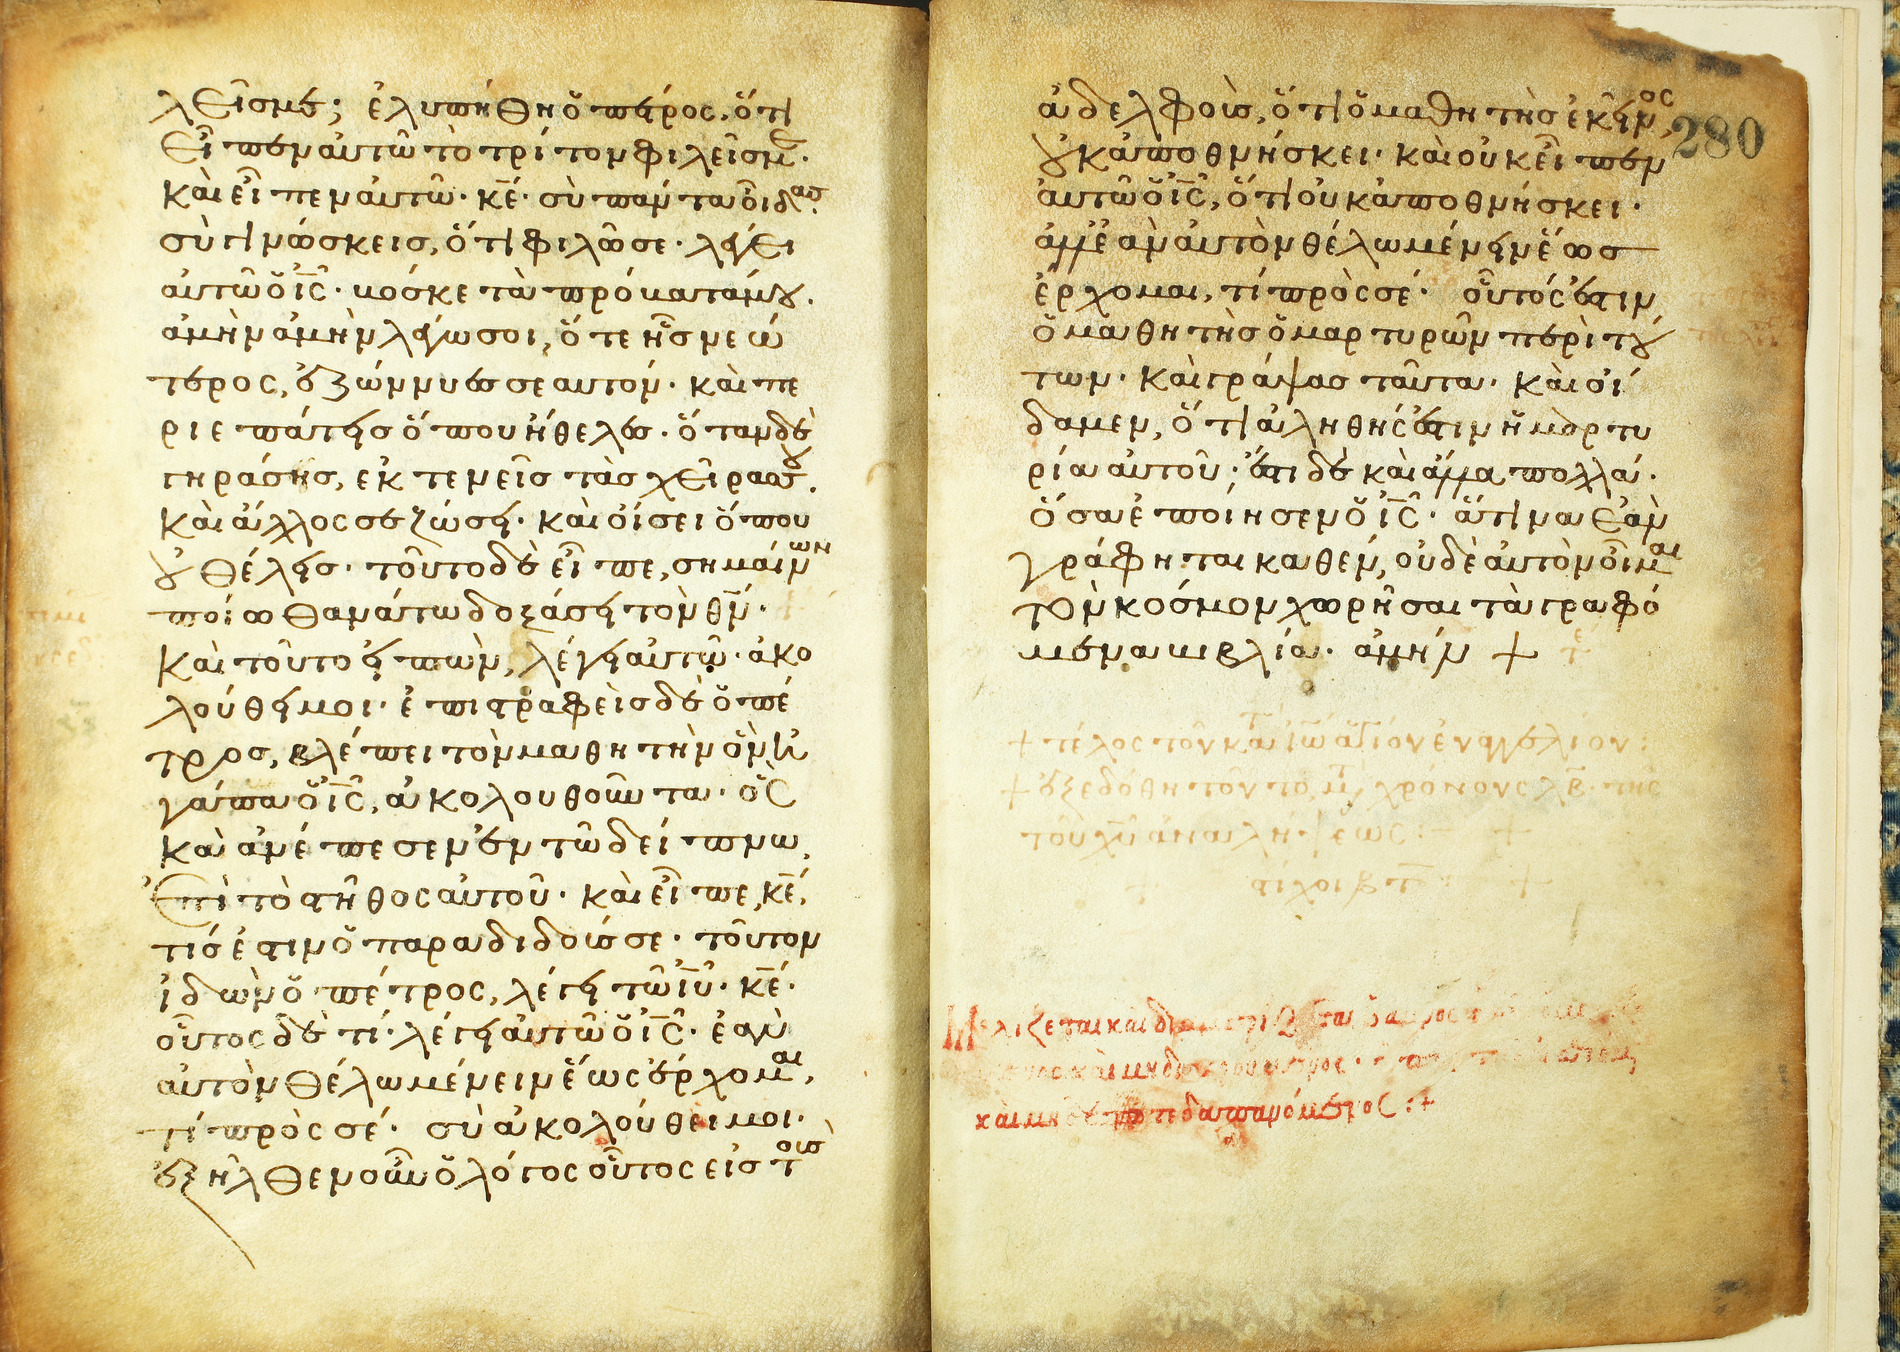 λεῖς με; ἐλυπήθη ὁ πέτρος, ὅτι
εἶπεν αὐτῶ τὸ τρίτον φιλεῖς με·
καὶ εἶπεν αὐτῶ· κε̅· σὺ πάντα οἶδας·
σὺ γινώσκεις, ὅτι φιλῶ σε· λέγει
αὐτῶ ὁ ις̅· βόσκε τὰ πρόβατά μου.
ἀμὴν ἀμὴν λέγω σοι, ὅτε ἦς νεώ
τερος, ἐζώννυες σεαυτόν· καὶ πε
ριεπάτεις ὅπου ἤθελες· ὅταν δὲ
γηράσῃς, ἐκτενεῖς τὰς χεῖρας σου.
καὶ ἄλλος σε ζώσει· καὶ οἴσει ὅπου
οὐ θέλεις· τοῦτο δὲ εἶπε, σημαίνων
ποίω θανάτω δοξάσει τὸν θν̅·
καὶ τοῦτο εἰπὼν, λέγει αὐτῶ· ἀκο
λούθει μοι· ἐπιστραφεὶς δὲ ὁ πέ
τρος, βλέπει τὸν μαθητὴν ὃν ἠ
γάπα ὁ ις̅, ἀκολουθοῦντα· ὃς
καὶ ἀνέπεσεν ἐν τῶ δείπνω,
ἐπὶ τὸ στῆθος αὐτοῦ· καὶ εἶπε, κε̅,
τίς ἐστιν ὁ παραδιδούς σε· τοῦτον
ἰδὼν ὁ πέτρος, λέγει τῶ ιυ̅· κε̅·
οὗτος δὲ τί· λέγει αὐτῶ ὁ ις̅· ἐὰν
αὐτὸν θέλω μένειν ἕως ἔρχομαι,
τί πρὸς σέ· σὺ ἀκολούθει μοι·
ἐξῆλθεν οὖν ὁ λόγος οὗτος εἰς τοὺς
280
ἀδελφοὺς, ὅτι ὁ μαθητὴς ἐκεῖνος,
οὐκ ἀποθνήσκει· καὶ οὐκ εἶπεν
αὐτῶ ὁ ις̅, ὅτι οὐκ ἀποθνήσκει·
ἀλλ' ἐὰν αὐτὸν θέλω μένειν ἕως
ἔρχομαι, τί πρὸς σέ· οὗτός ἐστιν
ὁ μαθητὴς ὁ μαρτυρῶν περὶ τού
των· καὶ γράψας ταῦτα· καὶ οἴ
δαμεν, ὅτι ἀληθής ἐστιν ἡ μαρτυ
ρία αὐτοῦ· ἔστι δὲ καὶ ἄλλα πολλά·
ὅσα ἐποίησεν ὁ ις̅· ἅτινα ἐὰν
γράφηται καθ' ἕν, οὐδὲ αὐτὸν οἶμαι
τὸν κόσμον χωρῆσαι τὰ γραφό
μενα βιβλία· ἀμήν +
+ τέλος τοῦ κατὰ ιω̅ ἁγίου εὐαγγελίου:
+ ἐξεδόθη χρόνους λβ· τῆς
τοῦ χυ̅ ἀναλήψεως: +
στίχοι βτ
Μελίζεται καὶ
καὶ μηδέποτε δαπανόμενος :+